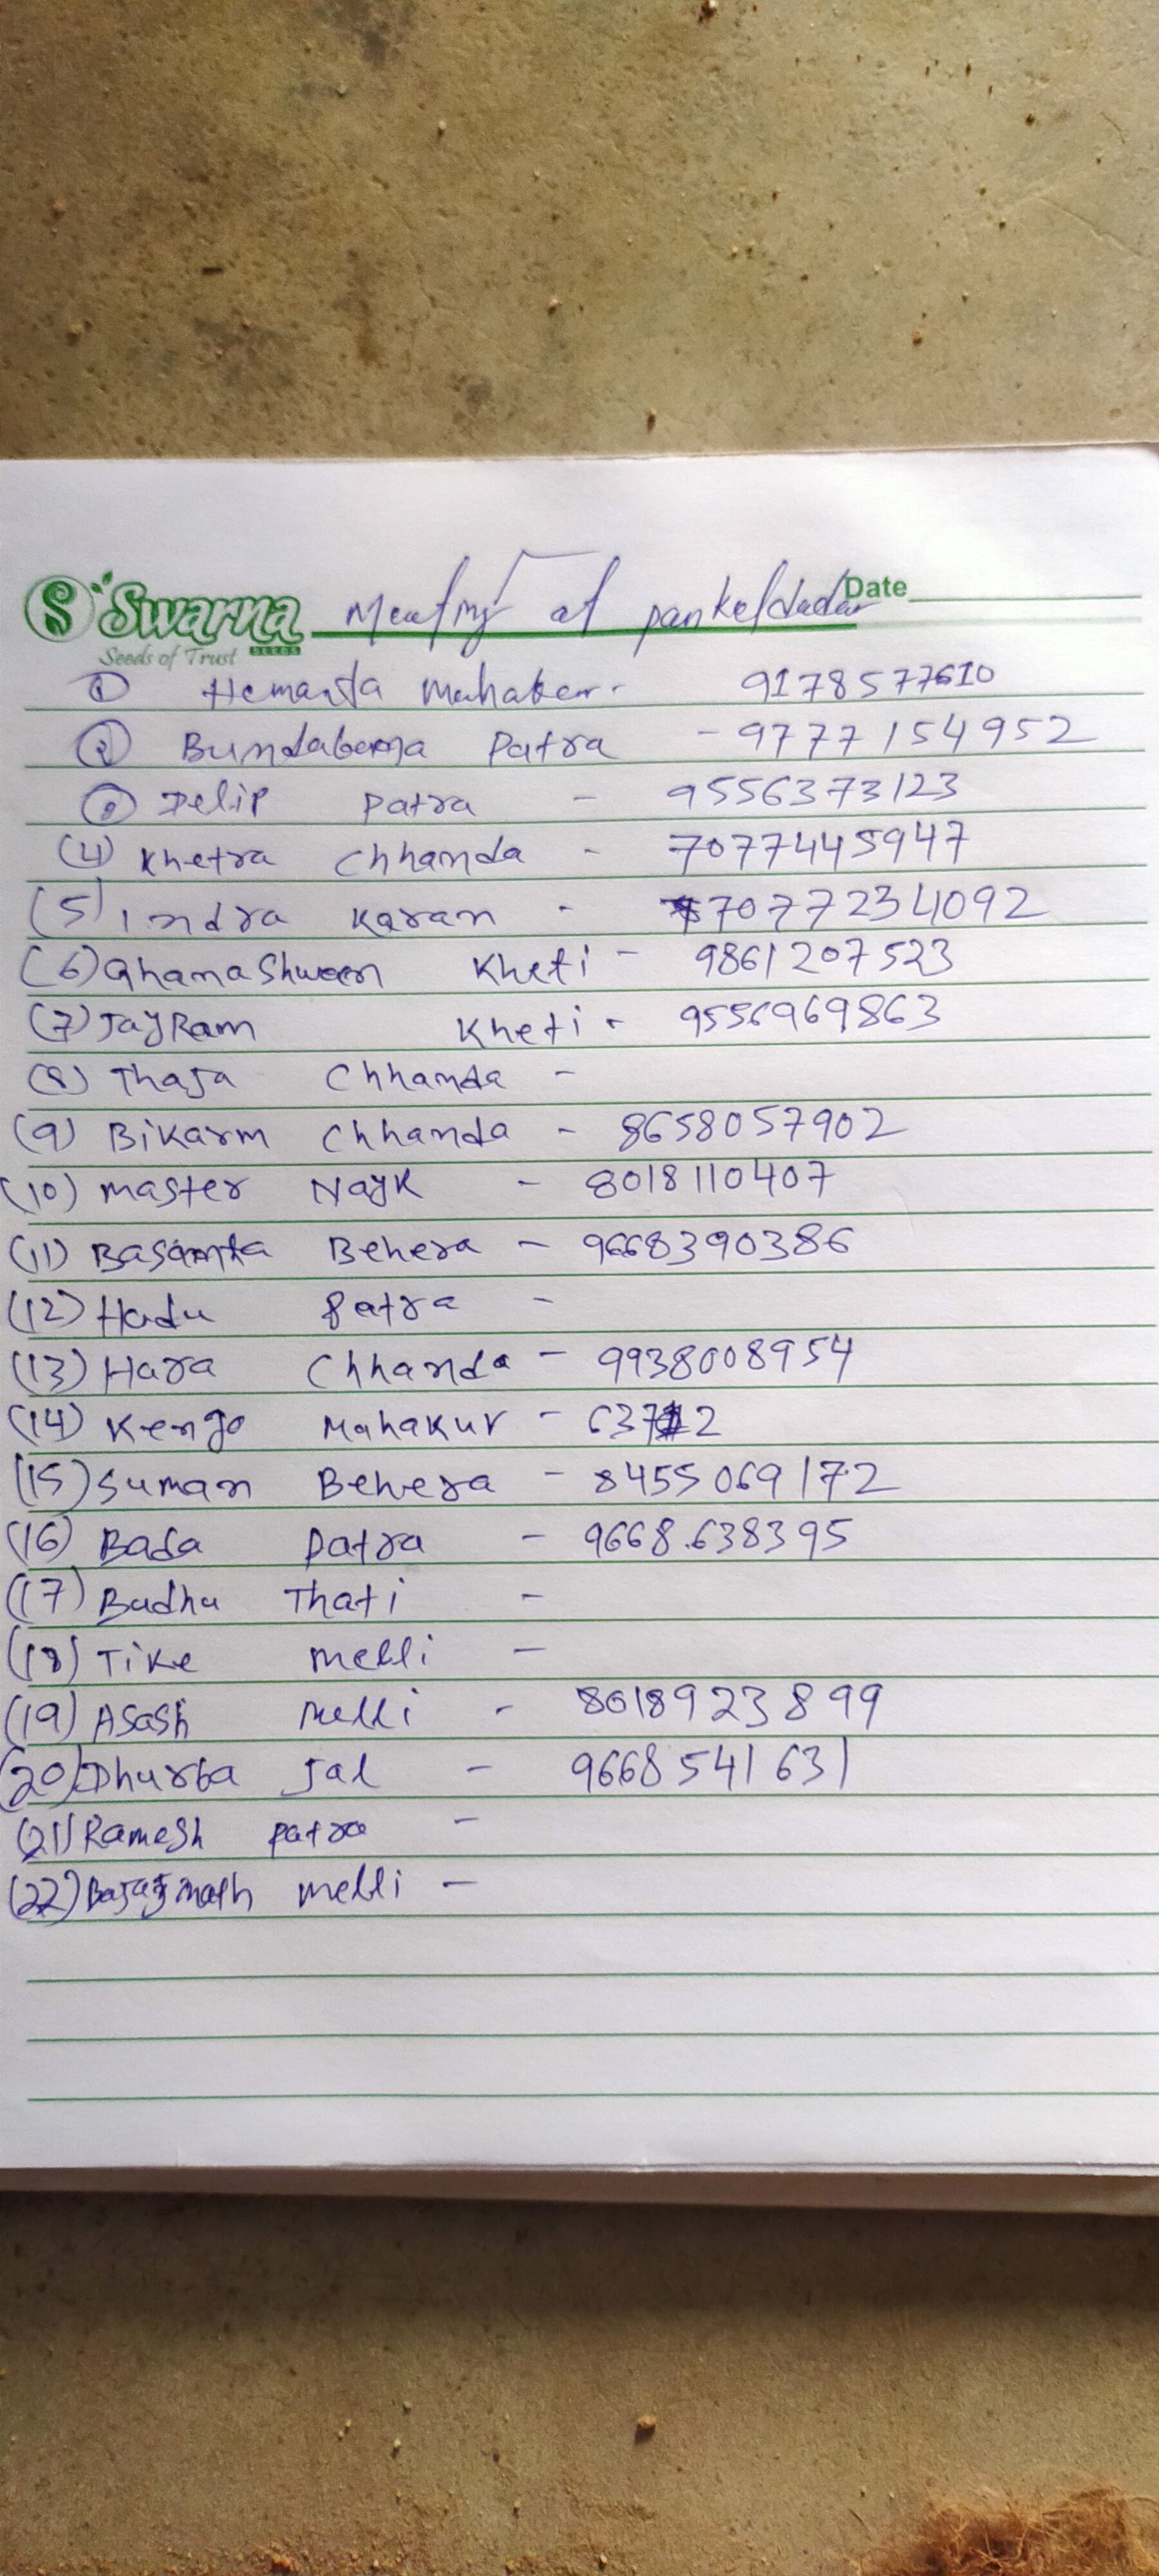 S Swarna
Seeds of Trust SEEDS
Meeting at pankeldadar Date
① Hemanta Mahaker - 9178577610
② Bundabena Patra - 9777154952
③ Delip Patra - 9556373123
(4) Khetra Chhanda - 7077445947
(5) Indra Karan - 7077234092
(6) Ghanashwen Kheti - 9861207523
(7) JayRam Kheti - 9556969863
(8) Thaja Chhanda -
(9) Bikarm Chhanda - 8658057902
(10) master Nayk - 8018110407
(11) Basamta Behera - 9668390386
(12) Hadu Patra -
(13) Hara Chhanda - 9938008954
(14) Kengo Mahakur - 637 2
(15) Suman Behera - 8455069172
(16) Bada Patra - 9668.638395
(17) Budhu Thati -
(18) Tike melli -
(19) Asash melli - 8018923899
(20) Dhurba Jal - 9668541631
(21) Ramesh patra -
(22) melli -